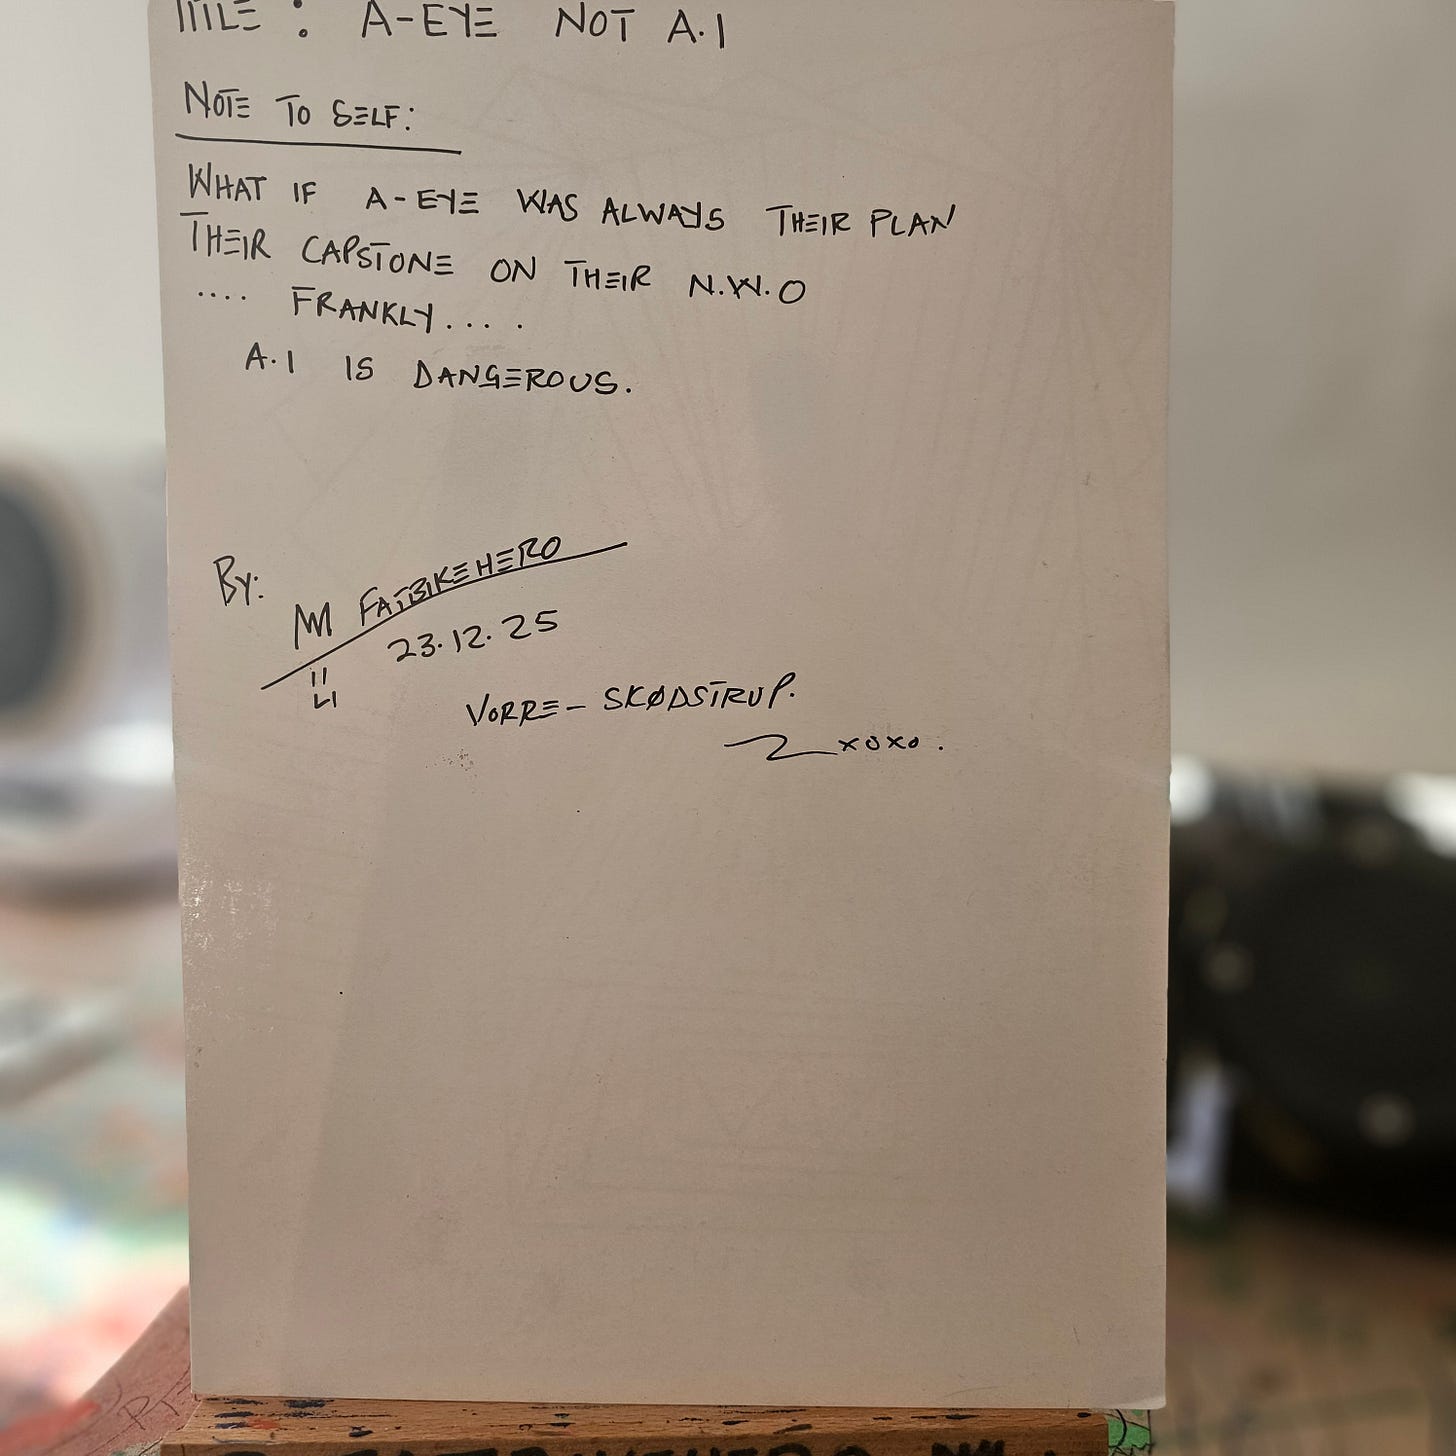 TITLE : A-EYE NOT A.I
NOTE TO SELF:
WHAT IF A-EYE WAS ALWAYS THEIR PLAN
THEIR CAPSTONE ON THEIR N.W.O
.... FRANKLY....
A.I IS DANGEROUS.
By: FATBIKEHERO
23.12.25
VORRE- SKØDSTRUP.
xoxo.